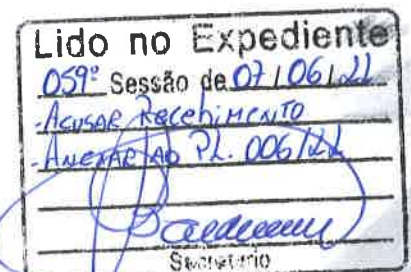 Lido no Expediente
059º Sessão de 07/06/22
-Acusar Recebimento
-Anexar ao PL. 006/22
Secretário